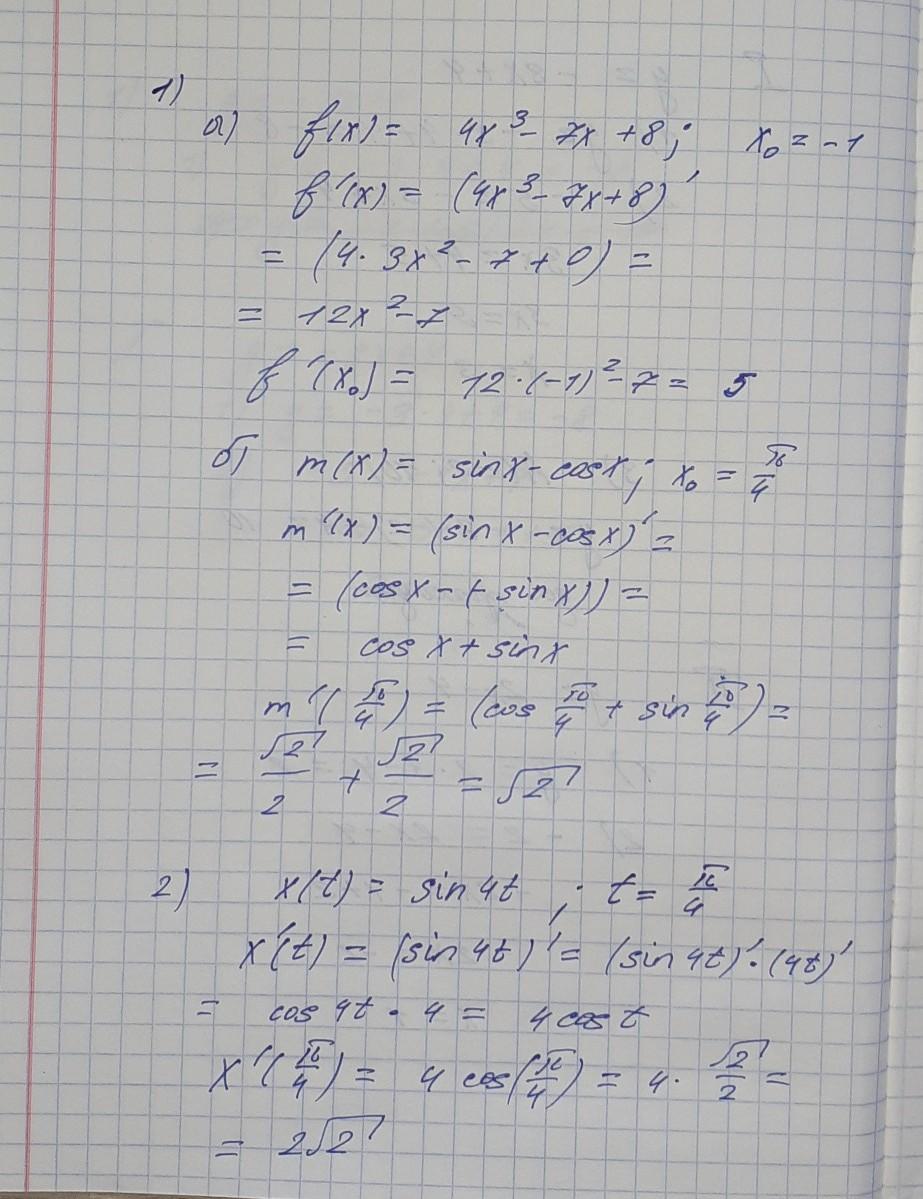 1)
а) f(x) = 4x³ - 7x + 8; x₀ = -1
f'(x) = (4x³ - 7x + 8)'
= (4 · 3x² - 7 + 0) =
= 12x² - 7
f'(x₀) = 12 · (-1)² - 7 = 5
б) m(x) = sin x - cos x; x₀ = π/4
m'(x) = (sin x - cos x)' =
= (cos x - (- sin x)) =
= cos x + sin x
m'(π/4) = (cos π/4 + sin π/4) =
= √2/2 + √2/2 = √2
2) x(t) = sin 4t ; t = π/4
x'(t) = (sin 4t)' = (sin 4t)' · (4t)'
= cos 4t · 4 = 4 cos t
x'(π/4) = 4 cos(π/4) = 4 · √2/2 =
= 2√2